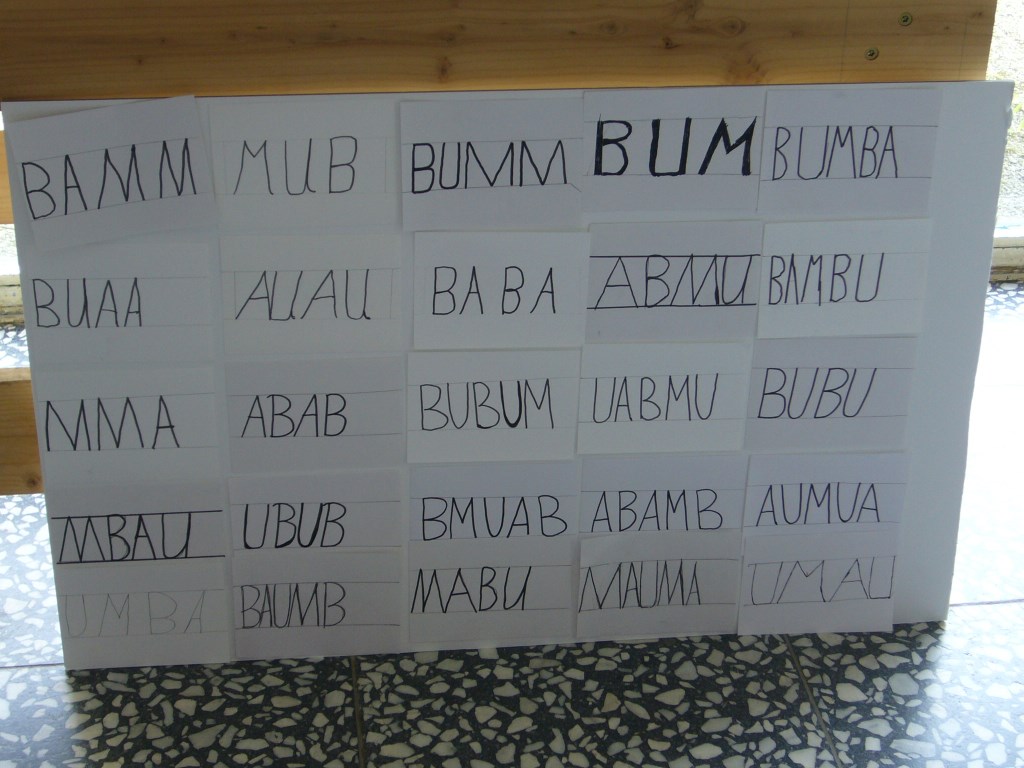 BAMM MUB BUMM BUM BUMBA
BUAA AUAU BABA ABMU BAMBU
MMA ABAB BUBUM UABMU BUBU
MBAU UBUB BMUAB ABAMB AUMUA
UMBA BAUMB MABU MAUMA UMAU